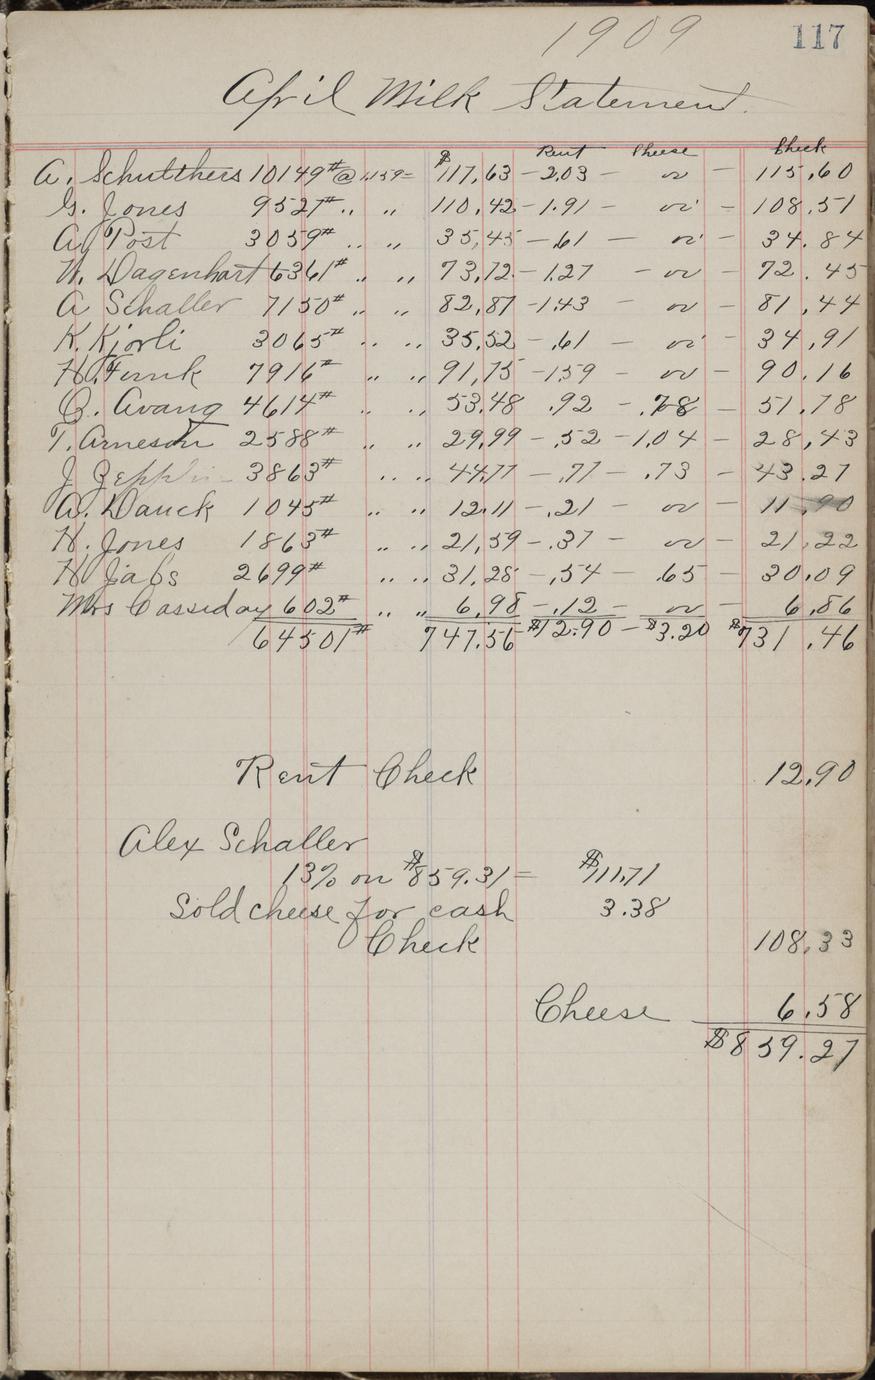 1909 117
April Milk Statement.
$ Rent Cheese Check
A. Schutthers 10149# @ 1.159= 117,63 - 2.03 - " - 115.60
G. Jones 9527# " " 110,42 - 1.91 - " - 108,51
A. Post 3059# " " 35,45 - .61 - " - 34.84
W. Dagenhart 6361# " " 73,12 - 1.27 - " - 72.45
A Schaller 7150# " " 82,87 - 1.43 - " - 81,44
K. Kjorli 3065# " " 35,52 - .61 - " - 34,91
H. Funk 7916# " " 91,75 - 1.59 - " - 90.16
O. Avang 4614# " " 53.48 .92 - .78 - 51.78
T. Arneson 2588# " " 29,99 - .52 - 1.04 - 28,43
J 3863# " " 44.77 - .77 - .73 - 43.27
A. Dauck 1045# " " 12.11 - .21 - " - 11.90
H. Jones 1863# " " 21,59 - .37 - " - 21,22
H Jabs 2699# " " 31,28 - .54 - .65 - 30.09
Mrs Cassiday 602# " " 6.98 - .12 - " - 6.86
64501# 747.56 - $12.90 - $3.20 $731.46
Rent Check 12,90
Alex Schaller
13% on $859.31 = $111.71
Sold cheese for cash 3.38
Check 108,33
Cheese 6.58
$859.27